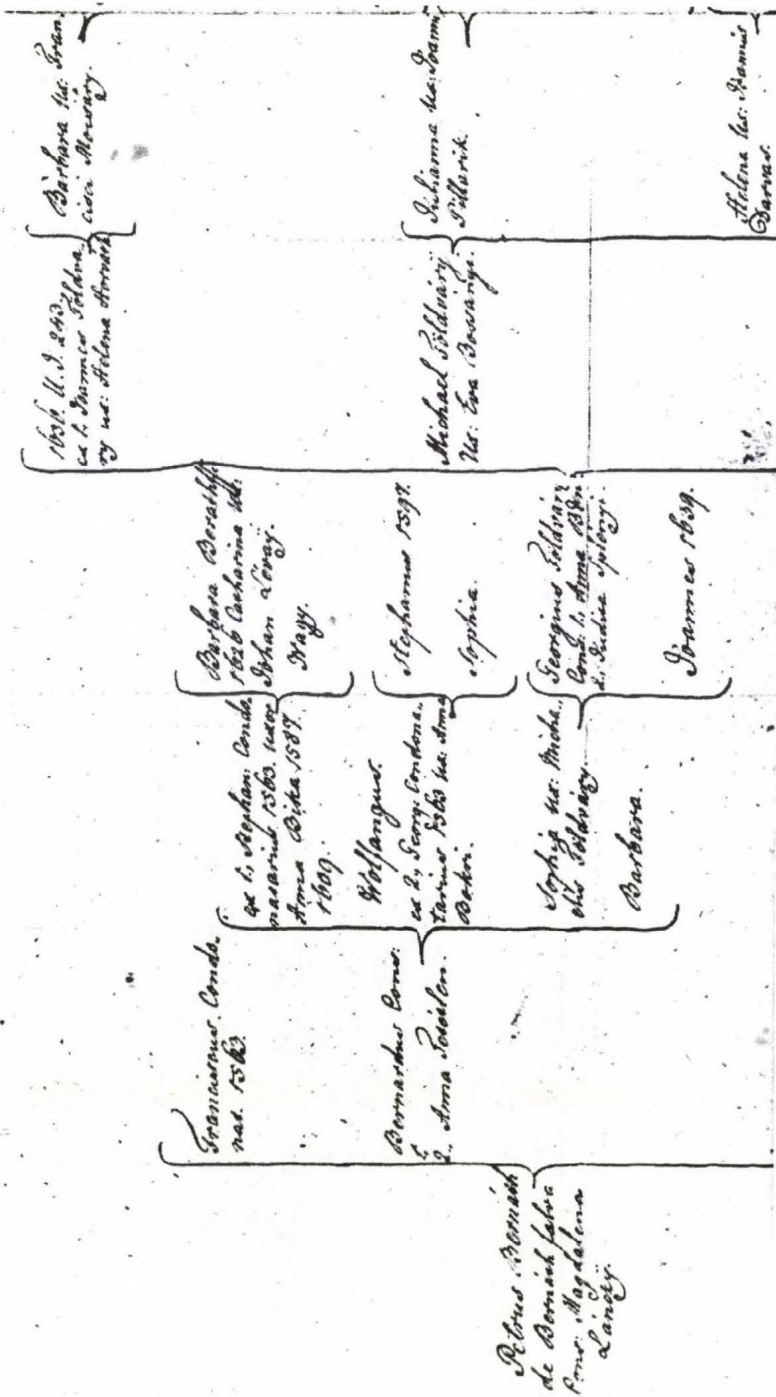 Petrus Bernáth
de Bernáth falva
Cons: Magdalena
Lánczÿ.
Franciscus. Condo.
nat. 1563.
Bernardus Cons:
1.
2, Anna
ex 1, Stephan: Condo.
natarius 1563. uxor
Anna Bika 1587.
1609.
Wolfangus.
ex 2, Georg: Condona.
tarius 1563 ux: Anna
Bekri.
Sophia ux: Micha.
elis Földváry.
Barbara.
Barbara Bernáth
1626 Catharina ux:
Johan Lévaÿ.
Nagy.
Stephanus 1597.
Sophia.
Georgius Földváry
Cons: 1, Anna
2, Judita
Joannes 1639.
1636. U. J. 243.
ex 1. Joannes Földvá.
ry ux: Helena Horváth
Michael Földváry
Ux: Eva Bossányi.
Barbara Ux: Fran.
cisci
Juhanna Ux: Joannis
Pillarik.
Helena Ux: Joannis
Darvas.